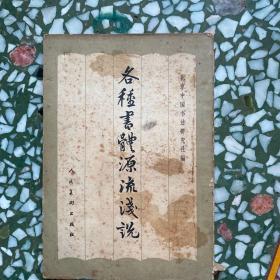 北京中国书法研究社编
各種書體源流淺說
人民美术出版社